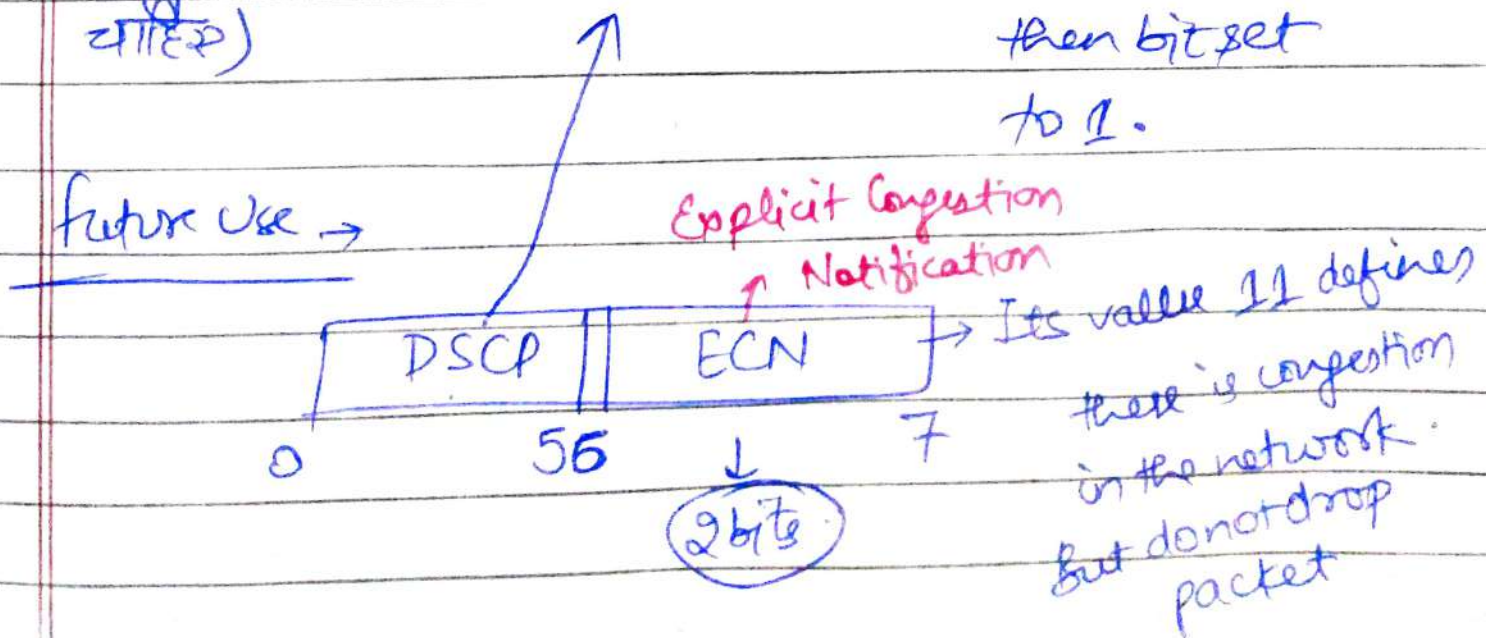 चाहिए)
then bit set
to 1.
future Use →
Explicit Congestion
Notification
DSCP
ECN
→ Its value 11 defines
there is congestion
in the network.
But do not drop
packet
0
5 6
7
2 bits